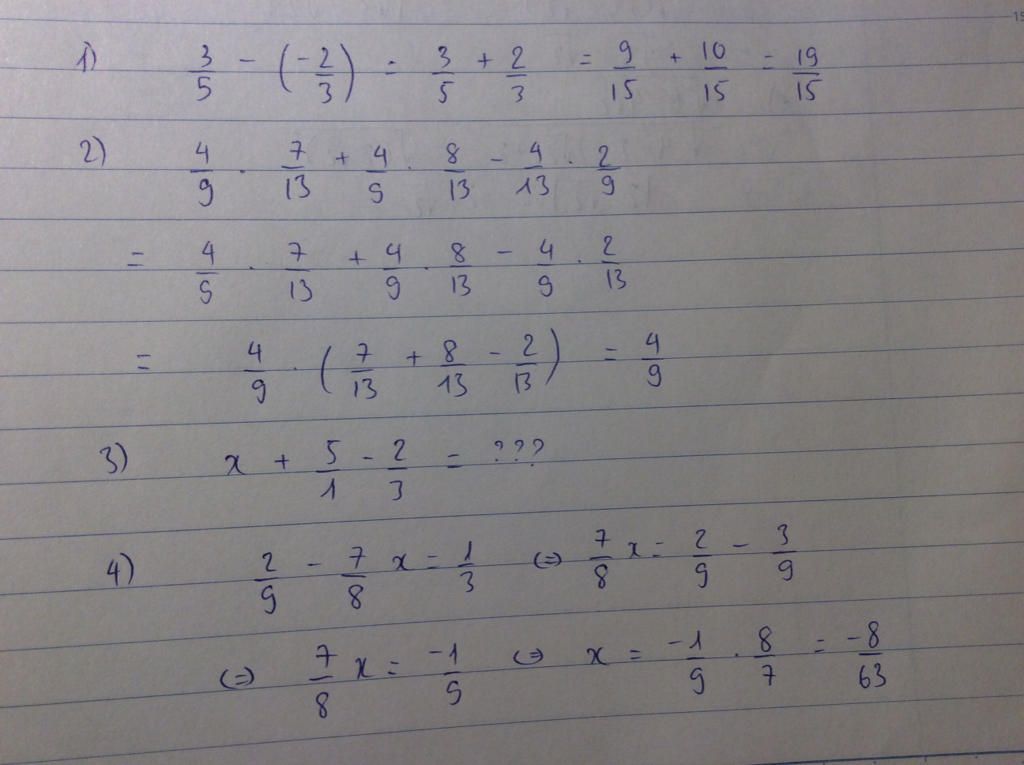 15
1) 3/5 - (-2/3) = 3/5 + 2/3 = 9/15 + 10/15 = 19/15
2) 4/9 . 7/13 + 4/9 . 8/13 - 4/13 . 2/9
= 4/9 . 7/13 + 4/9 . 8/13 - 4/9 . 2/13
= 4/9 . (7/13 + 8/13 - 2/13) = 4/9
3) x + 5/1 - 2/3 = ???
4) 2/9 - 7/8 x = 1/3 (=) 7/8 x = 2/9 - 3/9
(=) 7/8 x = -1/9 (=) x = -1/9 . 8/7 = -8/63